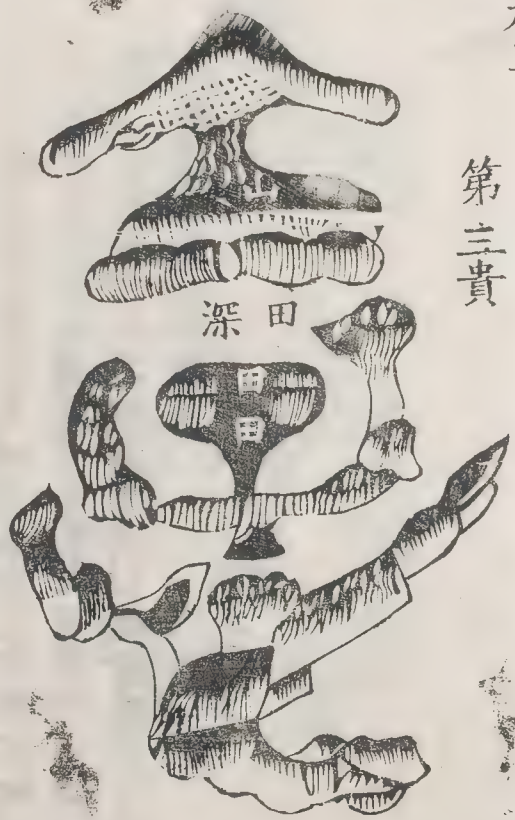 第三貴
山
深田
田
田